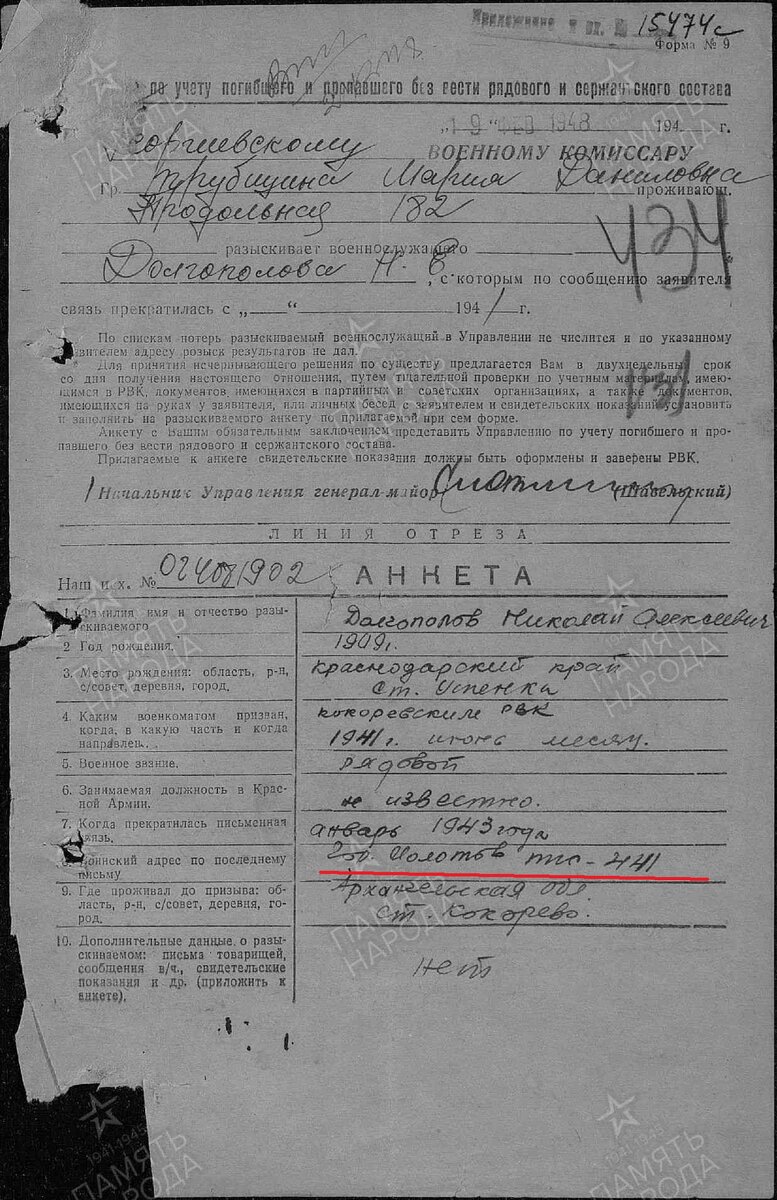 Приложение к вх. № 15474с
Форма № 9
по учету погибшего и пропавшего без вести рядового и сержантского состава
„19" ФЕВ 1948 194 г.
Георгиевскому ВОЕННОМУ КОМИССАРУ
Гр. Трубицина Мария Даниловна
проживающ.
Продольная 182
434
разыскивает военнослужащего
Долгополова Н. , с которым по сообщению заявителя
связь прекратилась с „ " 1941 г.
По спискам потерь разыскиваемый военнослужащий в Управлении не числится и по указанному
заявителем адресу розыск результатов не дал.
Для принятия исчерпывающего решения по существу предлагается Вам в двухнедельный срок
со дня получения настоящего отношения, путем тщательной проверки по учетным материалам, имею-
щимся в РВК, документов имеющихся в партийных и советских организациях, а также документов,
имеющихся на руках у заявителя, или личных бесед с заявителем и свидетельских показаний установить
и заполнить на разыскиваемого анкету по прилагаемой при сем форме.
131
Анкету с Вашим обязательным заключением представить Управлению по учету погибшего и про-
павшего без вести рядового и сержантского состава.
Прилагаемые к анкете свидетельские показания должны быть оформлены и заверены РВК.
Начальник Управления генерал-майор (Шавельский)
ЛИНИЯ ОТРЕЗА
Наш исх. № 02408/902 АНКЕТА
1. Фамилия имя и отчество разы-
скиваемого
Долгополов Николай Алексеевич
2 Год рождения.
1909г.
3. Место рождения: область, р-н,
с/совет, деревня, город.
Краснодарский край
ст. Успенка
4. Каким военкоматом призван,
когда, в какую часть и когда
направлен.
Кокоревским РВК
1941 г. июнь месяц.
5. Военное звание.
рядовой
6. Занимаемая должность в Крас-
ной Армии.
не известно.
7. Когда прекратилась письменная
связь.
январь 1943 года
8. Воинский адрес по последнему
письму
гор. Молотов ппс-441
9. Где проживал до призыва: об-
ласть, р-н, с/совет, деревня, го-
род.
Архангельская обл
ст. Кокорево.
10. Дополнительные данные о разы-
скиваемом: письма товарищей,
сообщения в/ч., свидетельские
показания и др. (приложить к
анкете).
нет
1941-1945
ПАМЯТЬ
НАРОДА